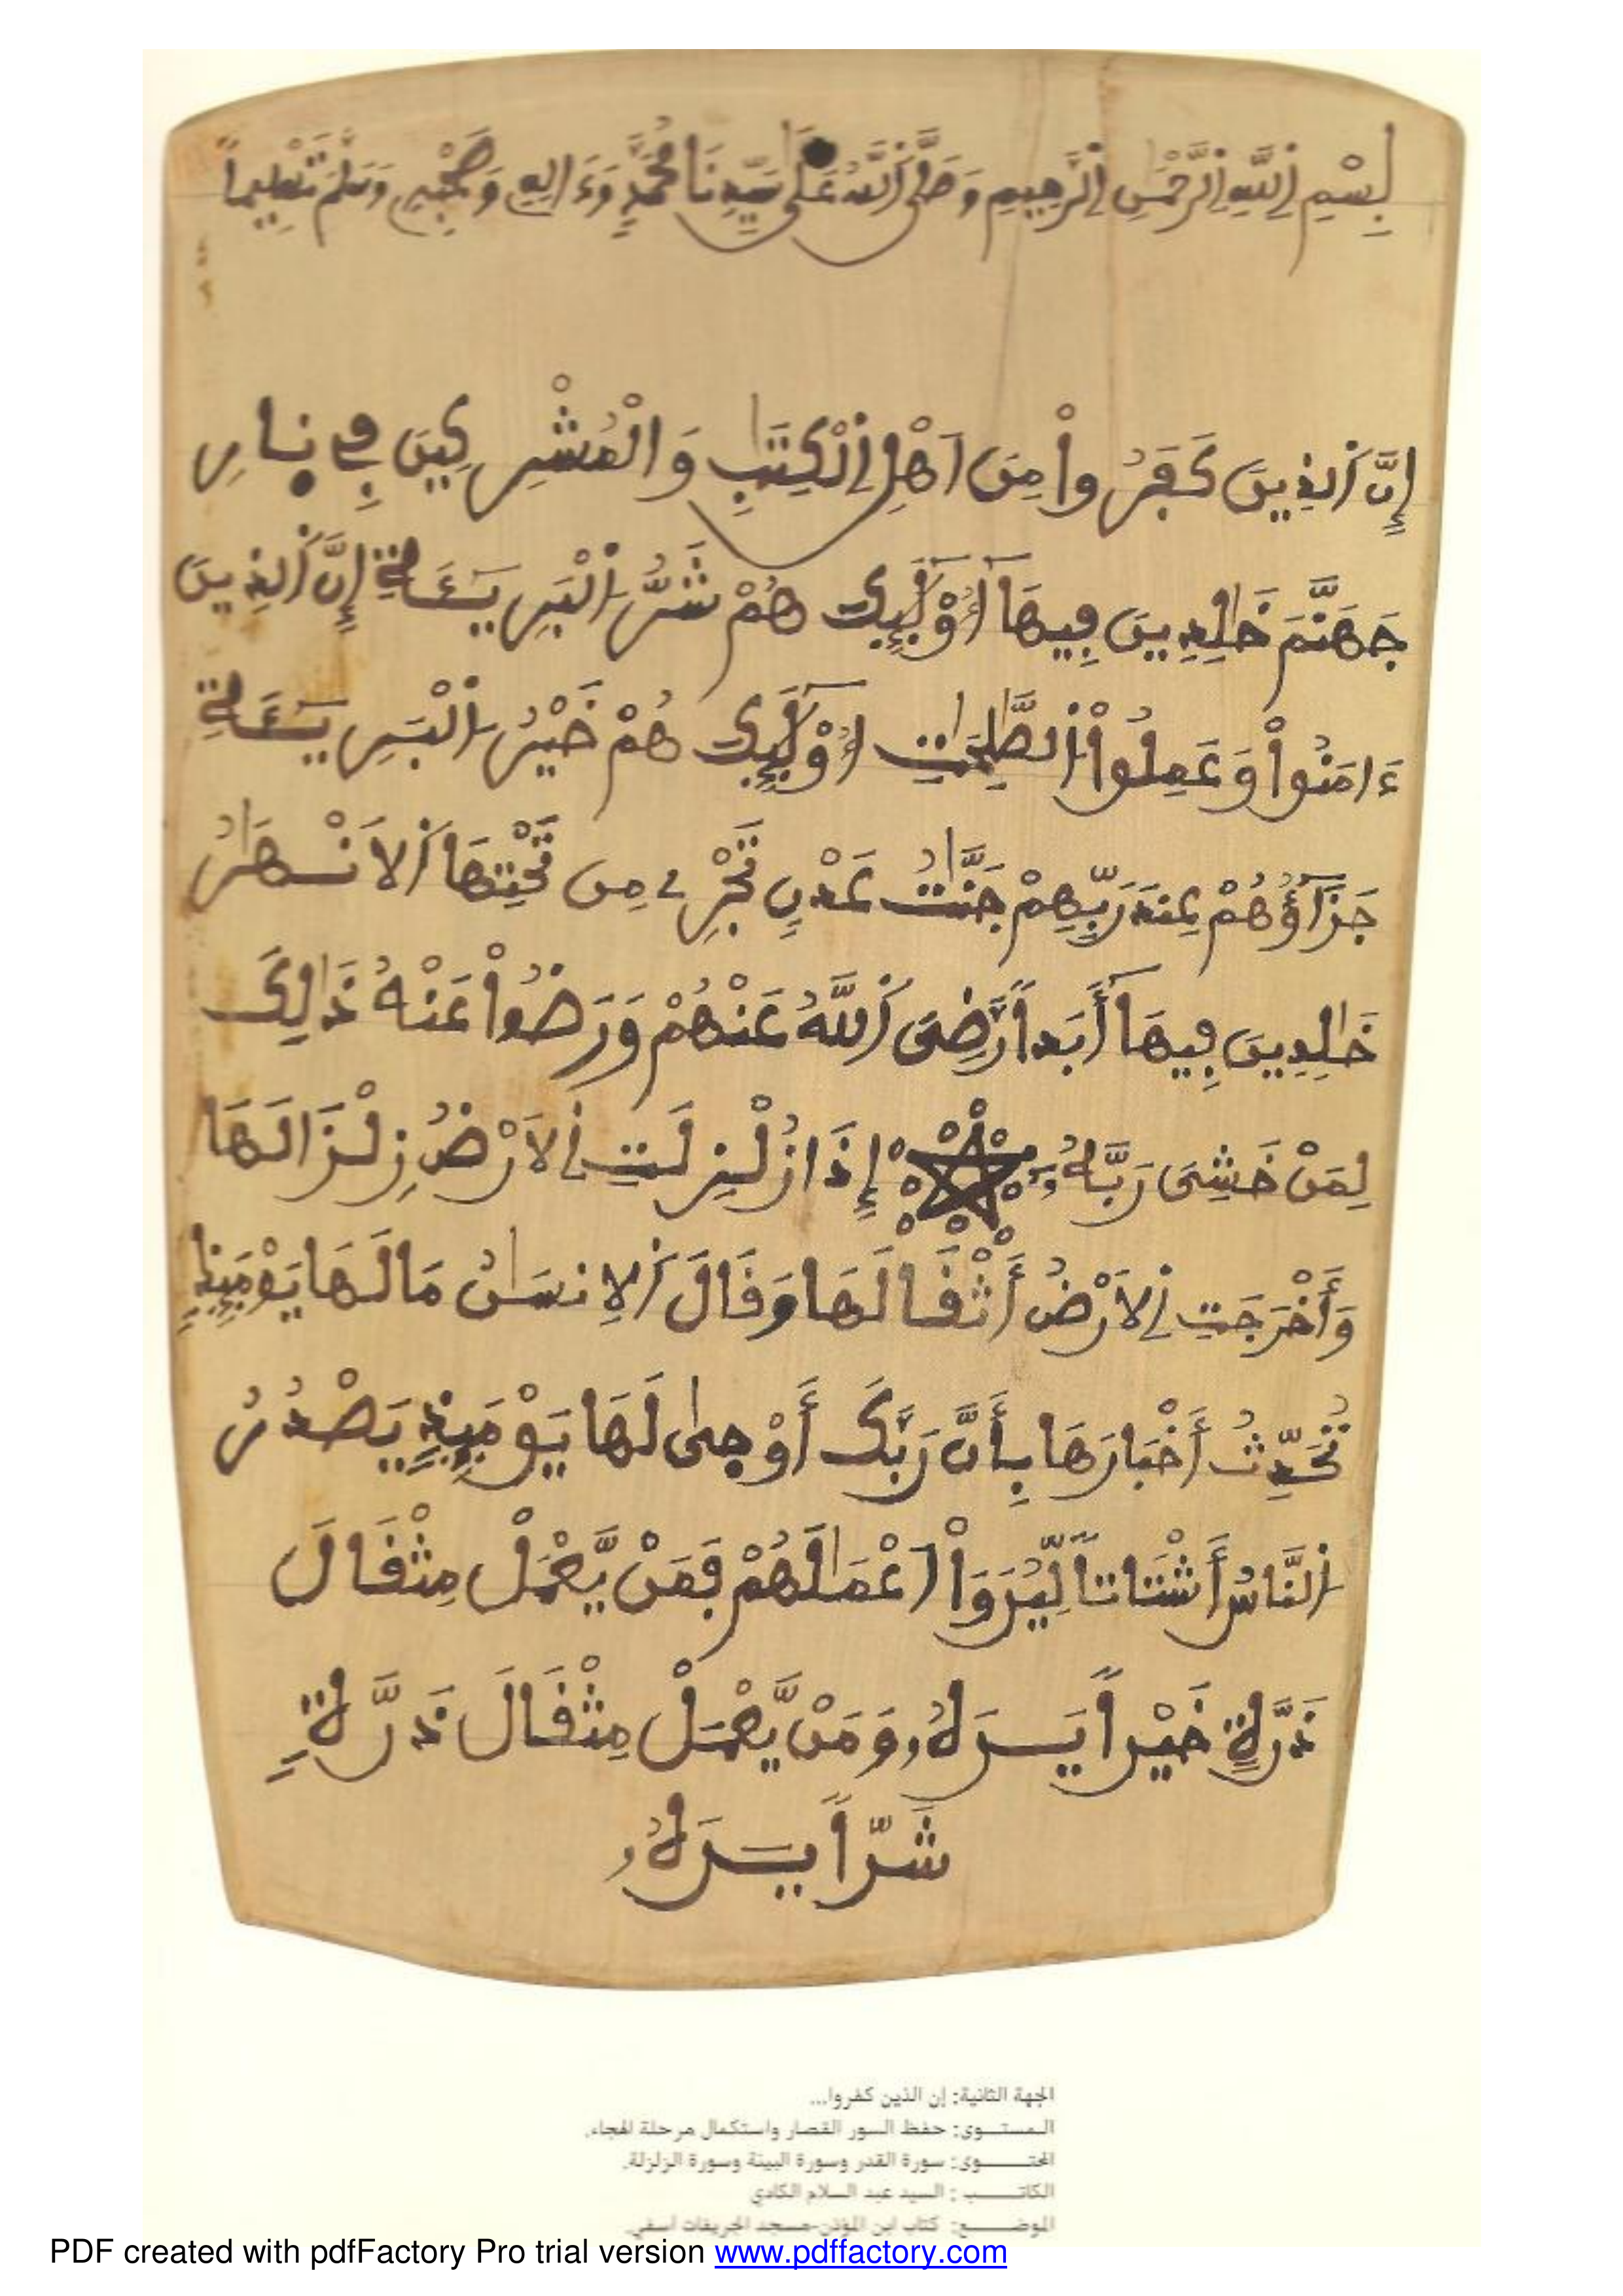 بِسْمِ اِ۬للَّهِ اِ۬لرَّحْمَٰنِ اِ۬لرَّحِيمِ وَصَلَّى اَ۬للَّهُ عَلَىٰ سَيِّدِنَا مُحَمَّدٍ وَءَالِهِ وَصَحْبِهِ وَسَلَّمَ تَسْلِيماً
إِنَّ اَ۬لذِينَ كَفَرُواْ مِنَ اَهْلِ اِ۬لْكِتَٰبِ وَالْمُشْرِكِينَ فِے نِارِ
جَهَنَّمَ خَٰلِدِينَ فِيهَآ أُوْلَٰٓئِكَ هُمْ شَرُّ اُ۬لْبَرِيـَٔةِ إِنَّ اَ۬لذِينَ
ءَامَنُواْ وَعَمِلُواْ اُ۬لصَّٰلِحَٰتِ أُوْلَٰٓئِكَ هُمْ خَيْرُ اُ۬لْبَرِيـَٔةِ
جَزَآؤُهُمْ عِندَ رَبِّهِمْ جَنَّٰتُ عَدْنٍ تَجْرِے مِن تَحْتِهَا اَ۬لَانْهَٰرُ
خَٰلِدِينَ فِيهَآ أَبَداً رَّضِيَ اَ۬للَّهُ عَنْهُمْ وَرَضُواْ عَنْهُ ذَٰلِكَ
لِمَنْ خَشِيَ رَبَّهُۥ إِذَا زُلْزِلَتِ اِ۬لَارْضُ زِلْزَالَهَا
وَأَخْرَجَتِ اِ۬لَارْضُ أَثْقَالَهَا وَقَالَ اَ۬لِانسَٰنُ مَا لَهَا يَوْمَئِذٍ
تُحَدِّثُ أَخْبَارَهَا بِأَنَّ رَبَّكَ أَوْحَىٰ لَهَا يَوْمَئِذٍ يَصْدُرُ
اُ۬لنَّاسُ أَشْتَاتاً لِّيُرَوَاْ اَعْمَٰلَهُمْ فَمَنْ يَّعْمَلْ مِثْقَالَ
ذَرَّةٍ خَيْراً يَرَهُۥ وَمَنْ يَّعْمَلْ مِثْقَالَ ذَرَّةٍ
شَرّاً يَرَهُۥ
الجهة الثانية: إن الذين كفروا...
المستوى: حفظ السور القصار واستكمال مرحلة الهجاء.
المحتوى: سورة القدر وسورة البينة وسورة الزلزلة.
الكاتب: السيد عبد السلام الكادي
الموضع: كتاب ابن المؤذن-مسجد الجريفات آسفي.
PDF created with pdfFactory Pro trial version www.pdffactory.com